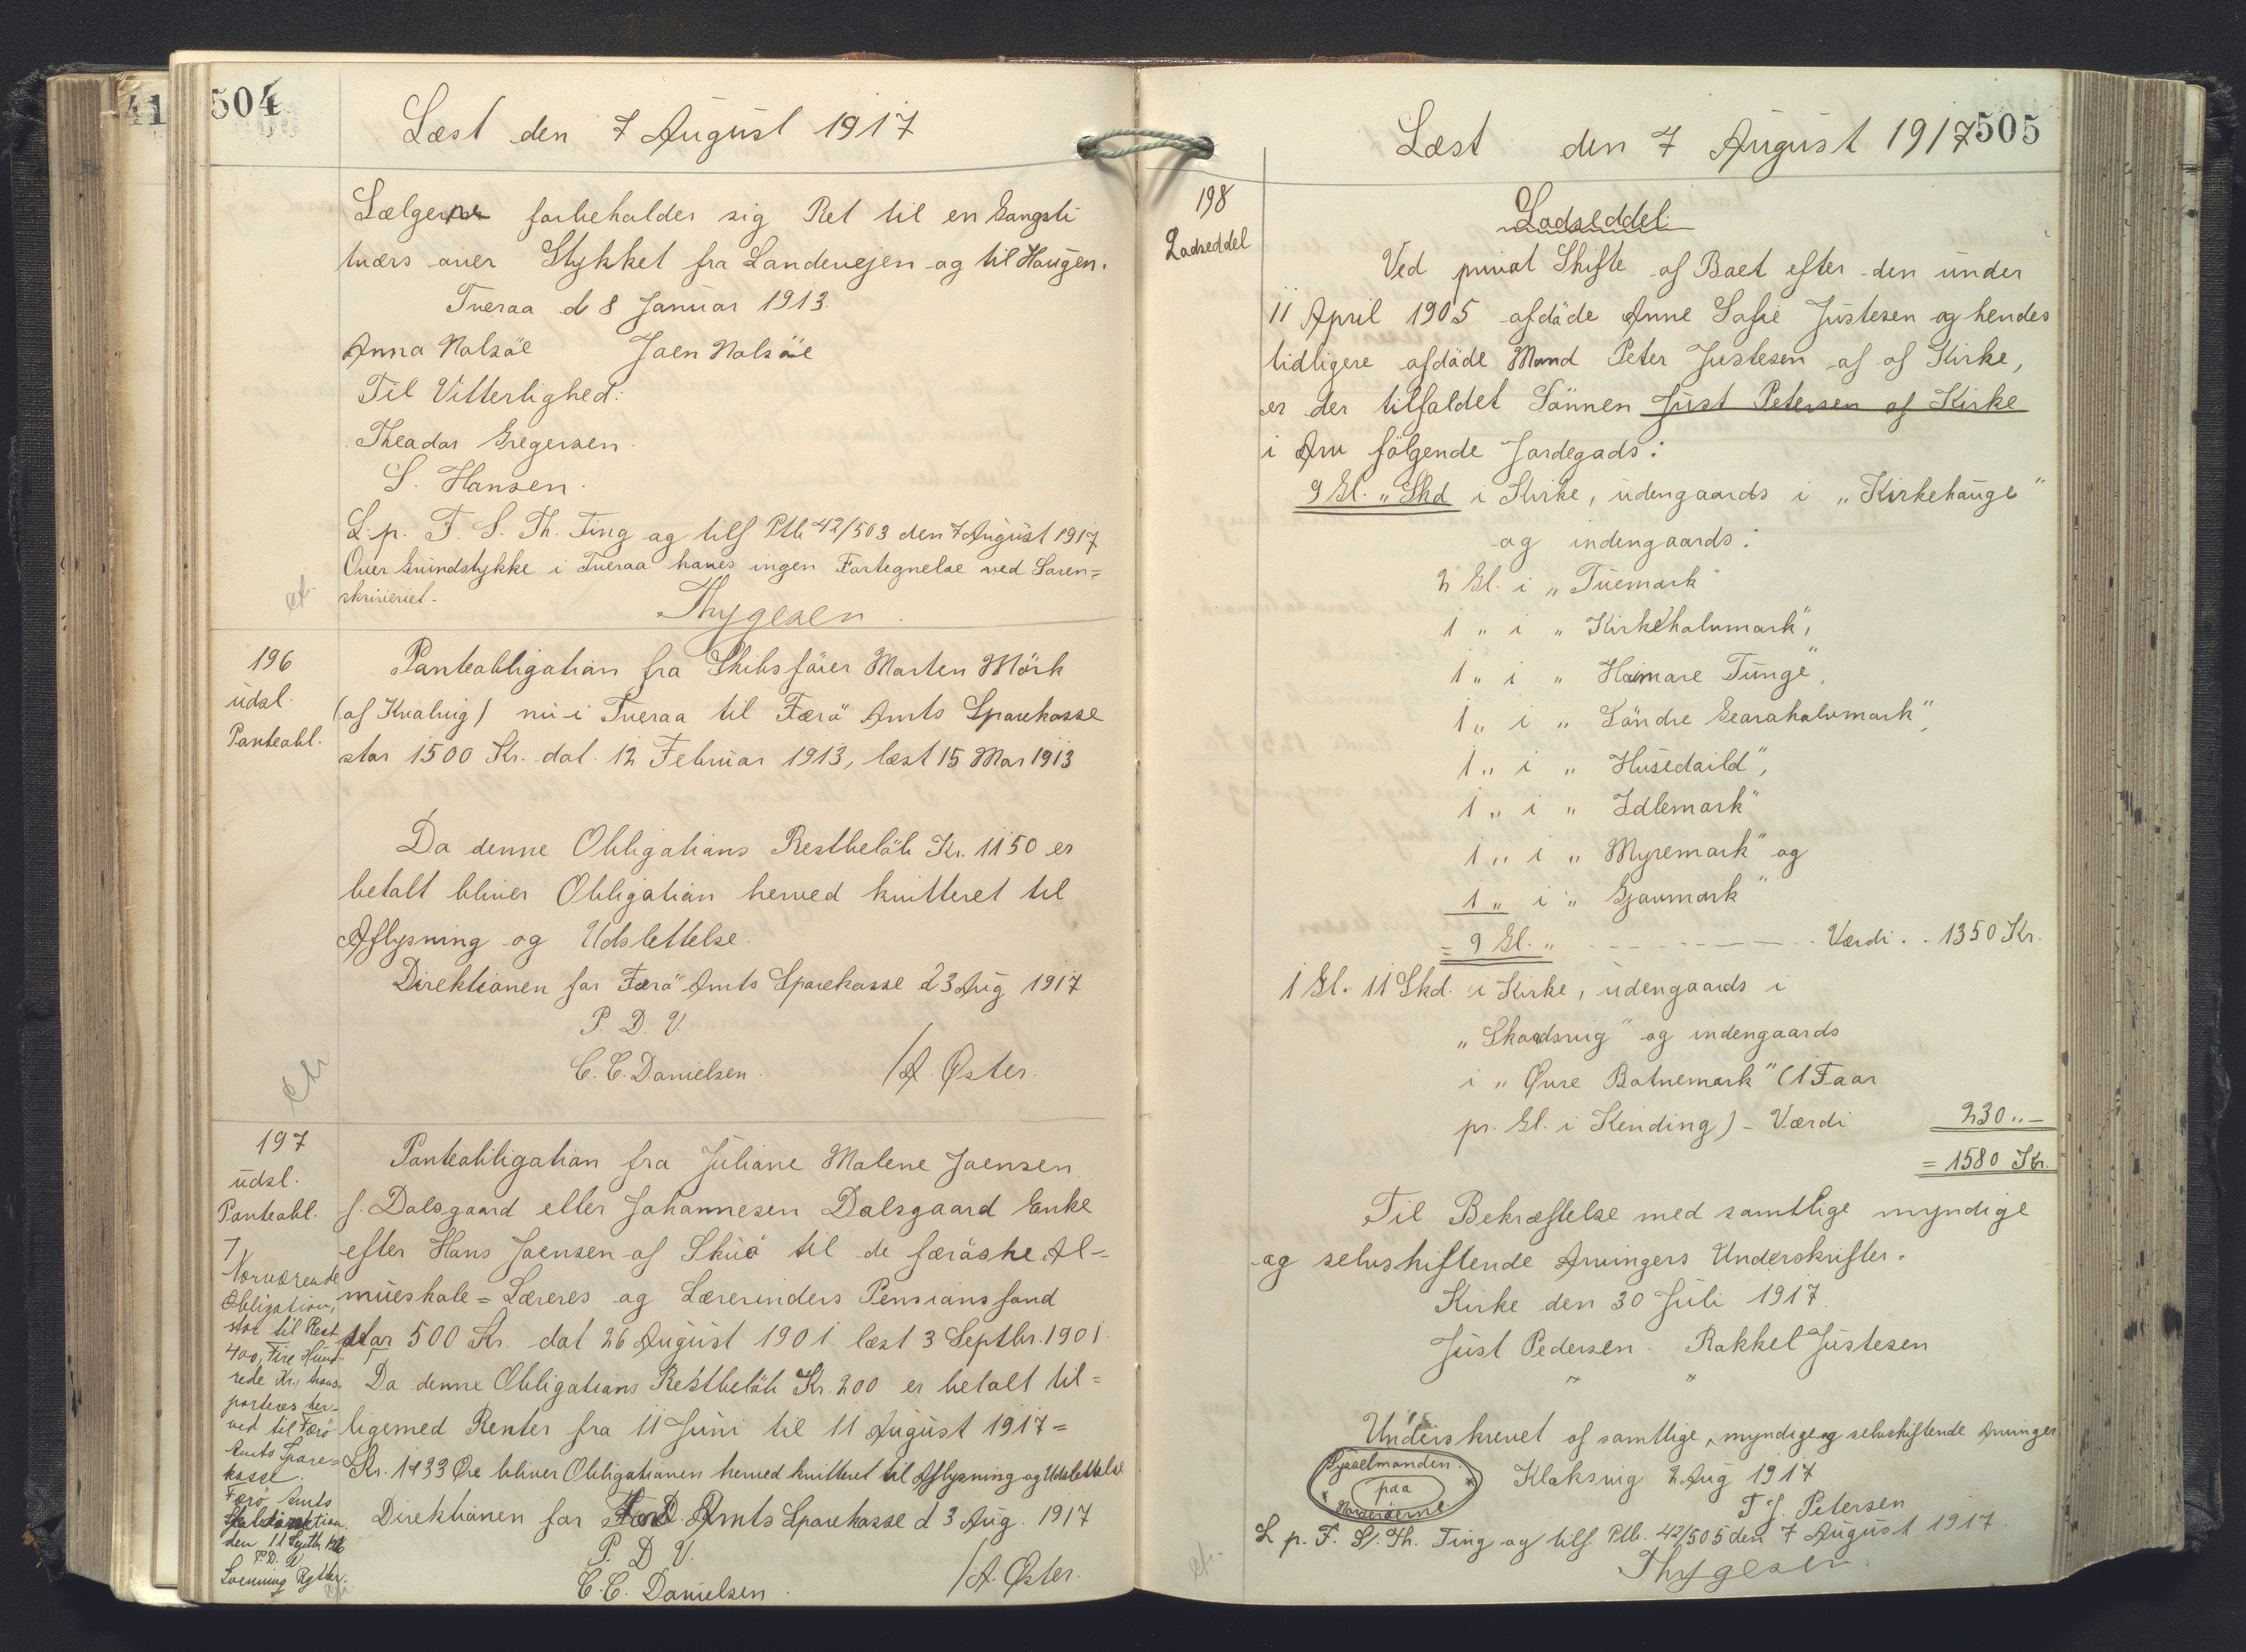 504
Læst den 7 August 1917
Sælgerne forbeholder sig Ret til en Gangsti
tværs over Stykket fra Landevejen og til Haugen.
Tveraa d 8 Januar 1913.
Anna Nolsöe Joen Nolsöe
Til Vitterlighed:
Theodor Gregersen.
S. Hansen.
L. p. F. S. Th. Ting og tilf Ptb 42/503 den 7 August 1917
Over Grundstykke i Tveraa haves ingen Fortegnelse ved Soren=
skriveriet.
Thygesen.
196
udsl.
Panteobl.
Panteobligation fra Skibsförer Morten Mörk
(af Kvalvig) nu i Tveraa til Færö Amts Sparekasse
stor 1500 Kr. dat. 12 Februar 1913, læst 15 Mar 1913
Da denne Obligations Restbelöb Kr. 1150 er
betalt bliver Obligation herved kvitteret til
Aflysning og Udslettelse.
Direktionen for Færö Amts Sparekasse d 3 Aug 1917
P. D. V.
C. C. Danielsen. /A. Øster.
197
udsl.
Panteobl.
Panteobligation fra Juliane Malene Joensen
f. Dalsgaard eller Johannesen Dalsgaard Enke
efter Hans Joensen af Skuö til de færöske Al=
mueskole=Læreres og Lærerinders Pensionsfond
stor 500 Kr. dat 26 August 1901 læst 3 Septbr. 1901.
Da denne Obligations Restbelöb Kr. 200 er betalt til=
ligemed Renter fra 11 Juni til 11 August 1917=
Kr. 1#33 Øre bliver Obligationen herved kvitteret til Aflysning og Udslettelse
Direktionen for Amts Sparekasse d 3 Aug. 1917
P. D. V.
C. C. Danielsen. /A. Øster.
Nærværende
Obligation,
stor til Rest
400, Fire Hund-
rede Kr., trans-
porteres her-
ved til Færö
Amts Spare=
kasse.
Færö Amts
den 11 Septb
P. D. V.
505
Læst den 7 August 1917
198
Lodseddel
Lodseddel.
Ved privat Skifte af Boet efter den under
11 April 1905 afdöde Anne Sofie Justesen og hendes
tidligere afdöde Mand Peter Justesen af af Kirke,
er der tilfaldet Sönnen Just Petersen af Kirke
i Arv fölgende Jordegods:
9 Gl. " Skd i Kirke, udengaards i "Kirkehauge"
og indengaards:
2 Gl. i "Tuemark"
1 " i " Kirkehalvmark",
1 " i " Haimare Tunge",
1 " i " Söndre Gearahalvmark",
1 " i " Husedaild",
1 " i " Idlemark"
1 " i " Myremark" og
1 " i " Gjovmark"
= 9 Gl. " - - - - - Værdi . . 1350 Kr.
1 Gl. 11 Skd. i Kirke, udengaards i
"Skoradsvig" og indengaards
i "Øvre Botnemark" (1 Faar
pr. Gl. i Kending) - Værdi 230 " -
= 1580 Kr.
Til Bekræftelse med samtlige myndige
og selvskiftende Arvingers Underskrifter.
Kirke den 30 Juli 1917.
Just Pedersen. Rakkel Justesen
" "
Underskrevet af samtlige myndige og selvskiftende Arvinger
Sysselmanden
paa
Norderöerne.
Klaksvig 2 Aug 1917
T J. Petersen
L p. F. S. Th. Ting og tilf. Ptb. 42/505 den 7 August 1917.
Thygesen.